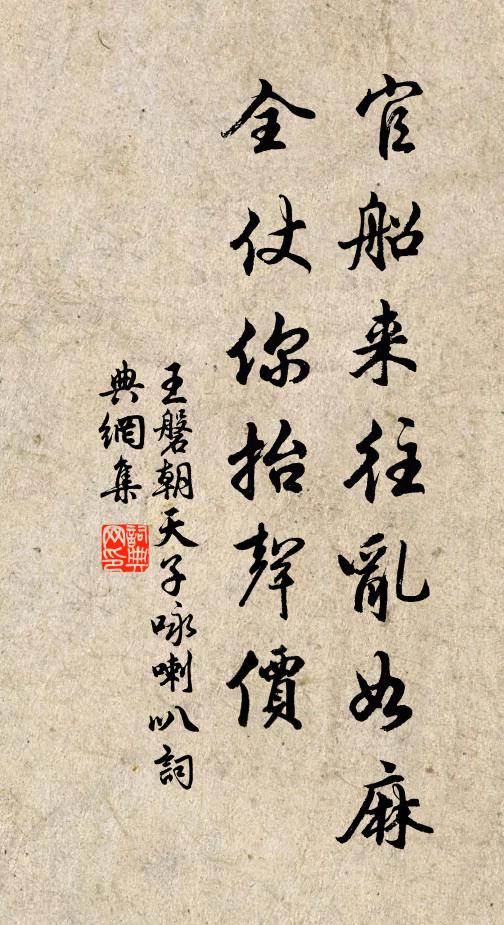 官船来往亂如麻
全仗你抬聲價
王磐朝天子咏喇叭詞
典網集
詞典
网印